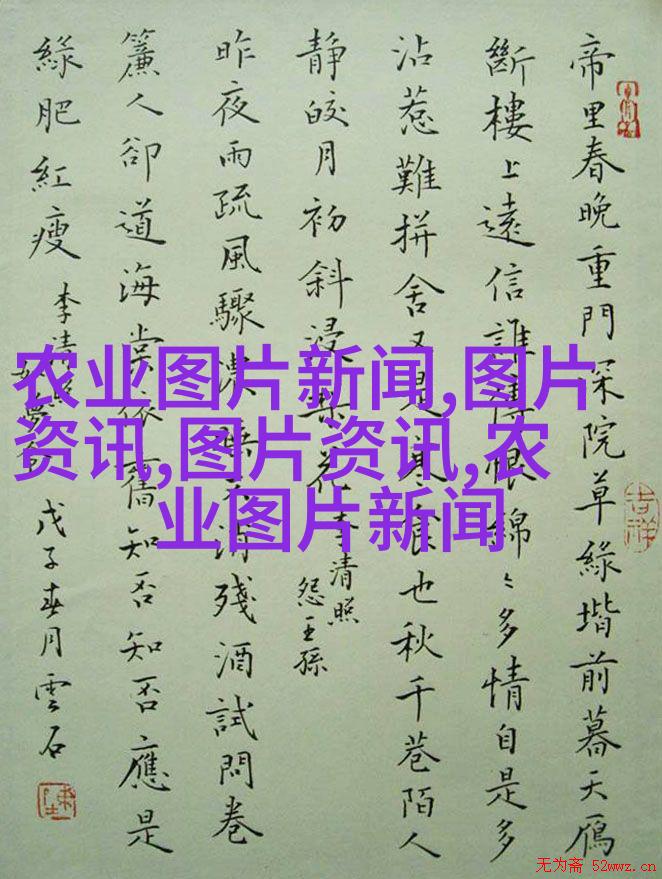 帝里春晚重門深院草綠堦前暮天鴈
斷樓上遠信誰傳恨綿〻多情自是多
沾惹難拼舍又是寒食也秋千巷陌人
靜皎月初斜浸梨花
李清照
怨王孫
昨夜雨疏風驟濃睡不消殘酒試問卷
簾人卻道海棠依舊知否知否應是
綠肥紅瘦
李清照
如夢令
戊子春月雲石
吉祥
农业图片新闻,图片
资讯,图片资讯,农
业图片新闻
无为斋 52wwz.cn